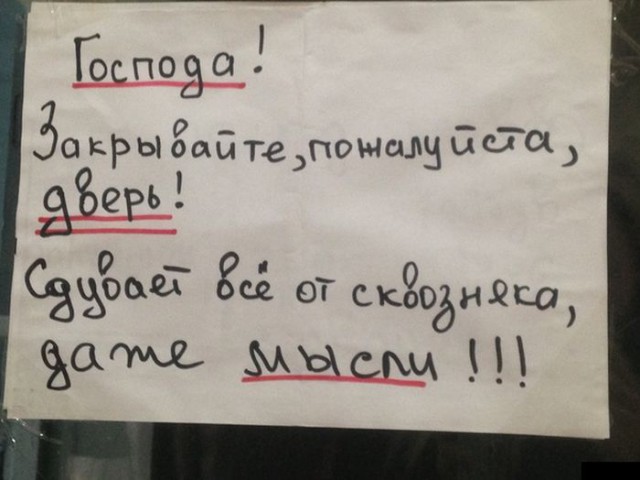 Господа!
Закрывайте, пожалуйста,
дверь!
Сдувает всё от сквозняка,
даже мысли!!!